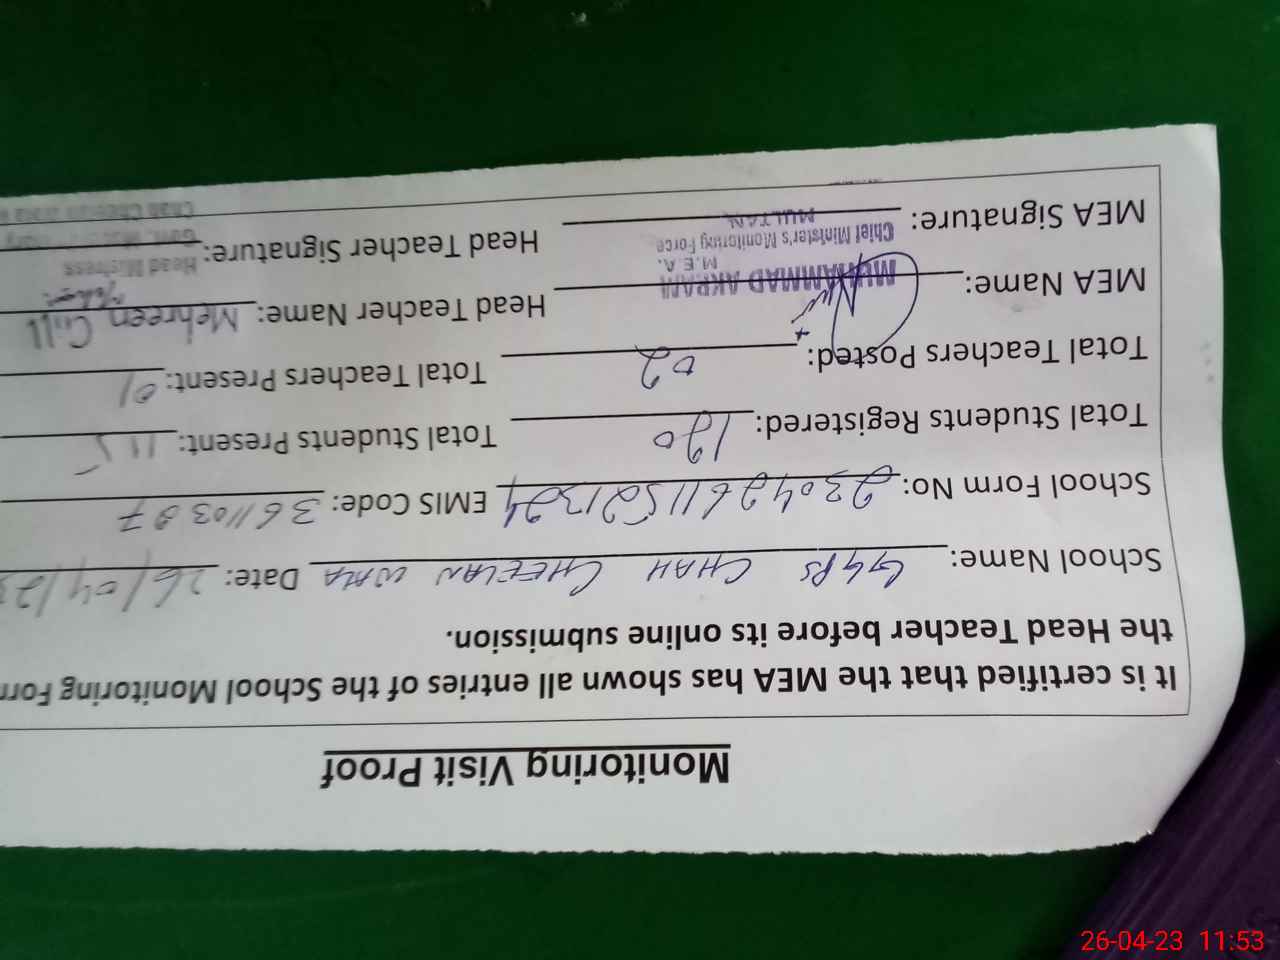 Monitoring Visit Proof
It is certified that the MEA has shown all entries of the School Monitoring Form
the Head Teacher before its online submission.
School Name: GGPS CHAH CHEELAN WALA Date: 26/04/23
School Form No: EMIS Code:
Total Students Registered: 190 Total Students Present: 115
Total Teachers Posted: 02 Total Teachers Present: 01
MEA Name: MUHAMMAD AKRAM Head Teacher Name: Mehreen Gull
M.E.A.
Chief Minister's Monitoring Force
MULTAN
Head Mistress
MEA Signature: Head Teacher Signature:
26-04-23 11:53